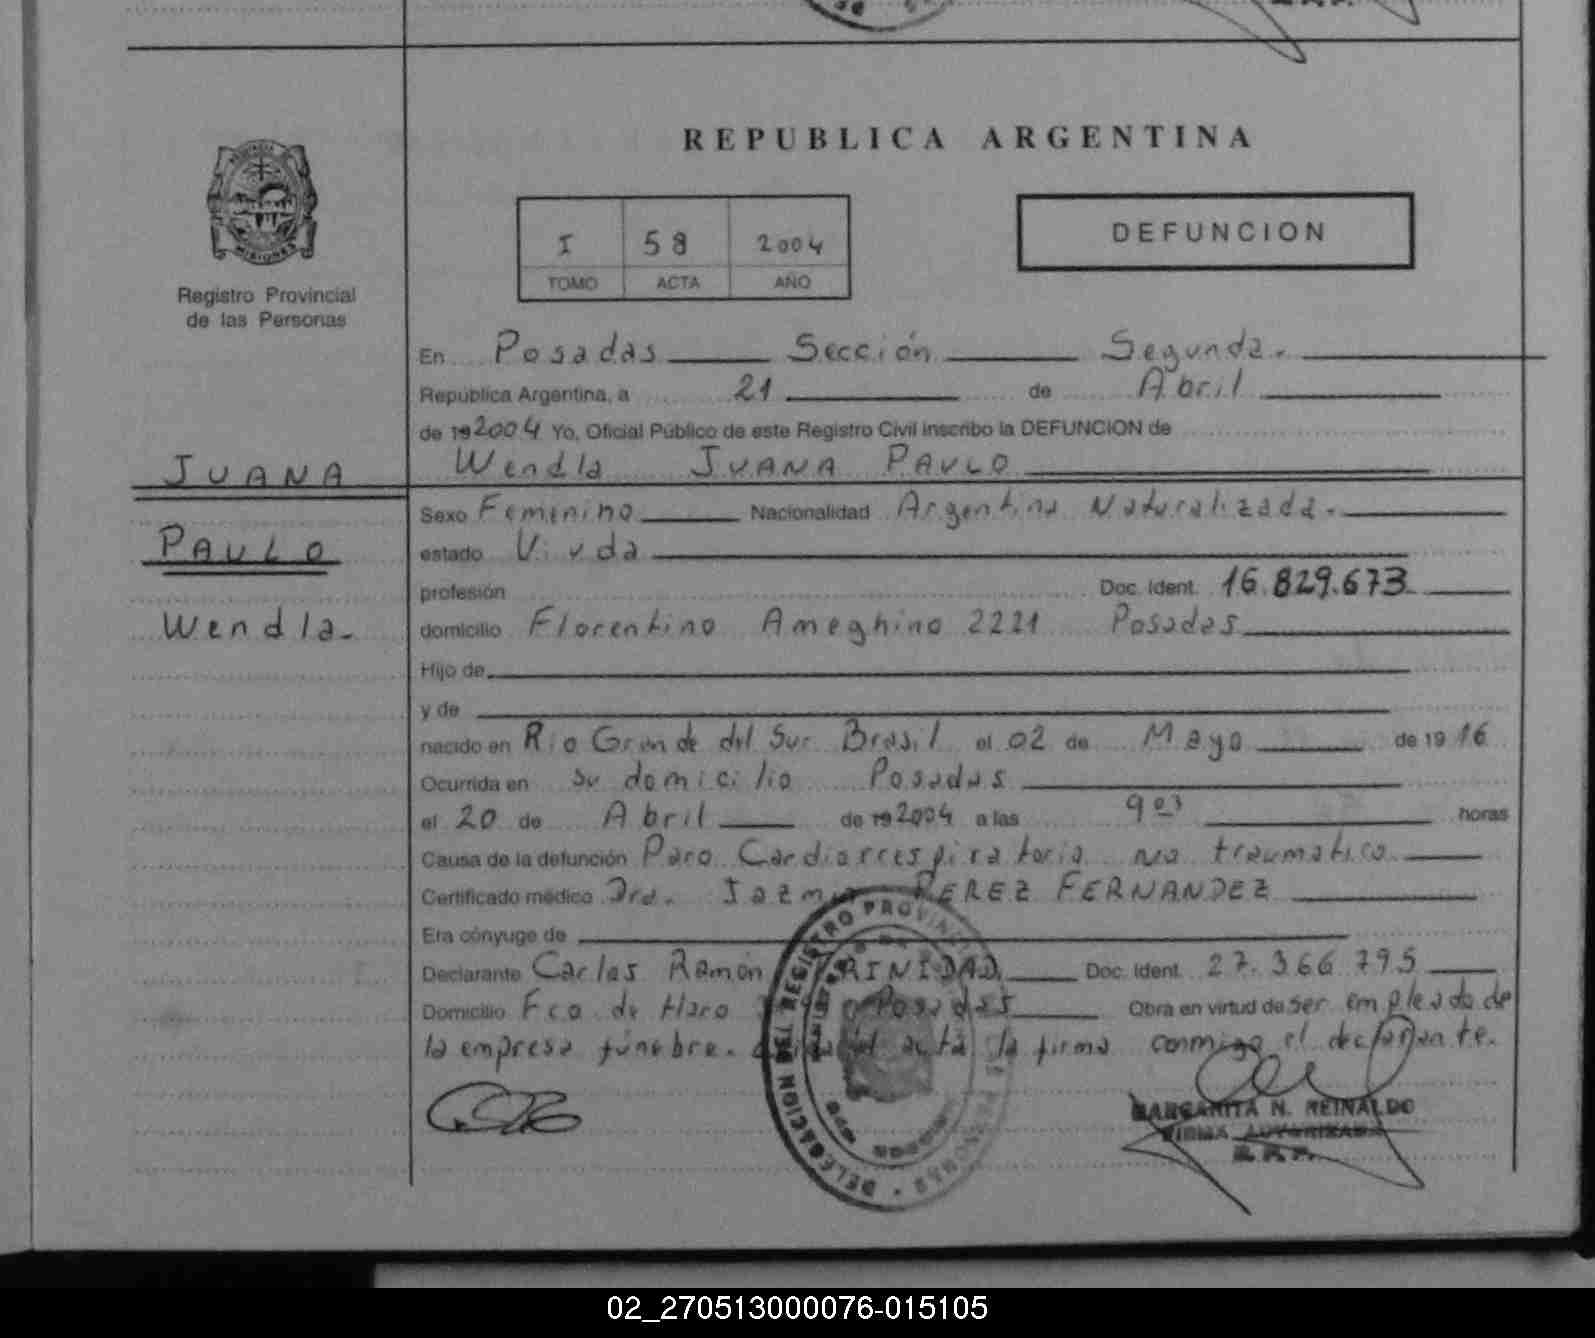 REPUBLICA ARGENTINA
PROVINCIA
MISIONES
Registro Provincial
de las Personas
I 58 2004
TOMO ACTA AÑO
DEFUNCION
En Posadas Sección Segunda.
República Argentina, a 21 de Abril
de 192004 Yo, Oficial Público de este Registro Civil inscribo la DEFUNCION de
Wendla JUANA PAULO
JUANA
PAULO
Wendla.
Sexo Femenino Nacionalidad Argentina Naturalizada.
estado Viuda
profesión Doc. Ident. 16.829.673
domicilio Florentino Ameghino 2221 Posadas
Hijo de
y de
nacido en Rio Grande del Sur Brasil el 02 de Mayo de 1916
Ocurrida en su domicilio Posadas
el 20 de Abril de 192004 a las 9 horas
Causa de la defunción Paro Cardiorrespiratorio no traumatico
Certificado médico Dra. Jazmin PEREZ FERNANDEZ
Era cónyuge de
Declarante Carlos Ramón TRINIDAD Doc. Ident. 27.366.795
Domicilio Fco. de Haro Posadas Obra en virtud de ser empleado de
la empresa fúnebre. acta la firma conmigo el declarante.
DELEGACION DEL REGISTRO PROVINCIAL DE LAS PERSONAS
MARGARITA N. REINALDO
FIRMA AUTORIZADA
R. P. P.
02_270513000076-015105